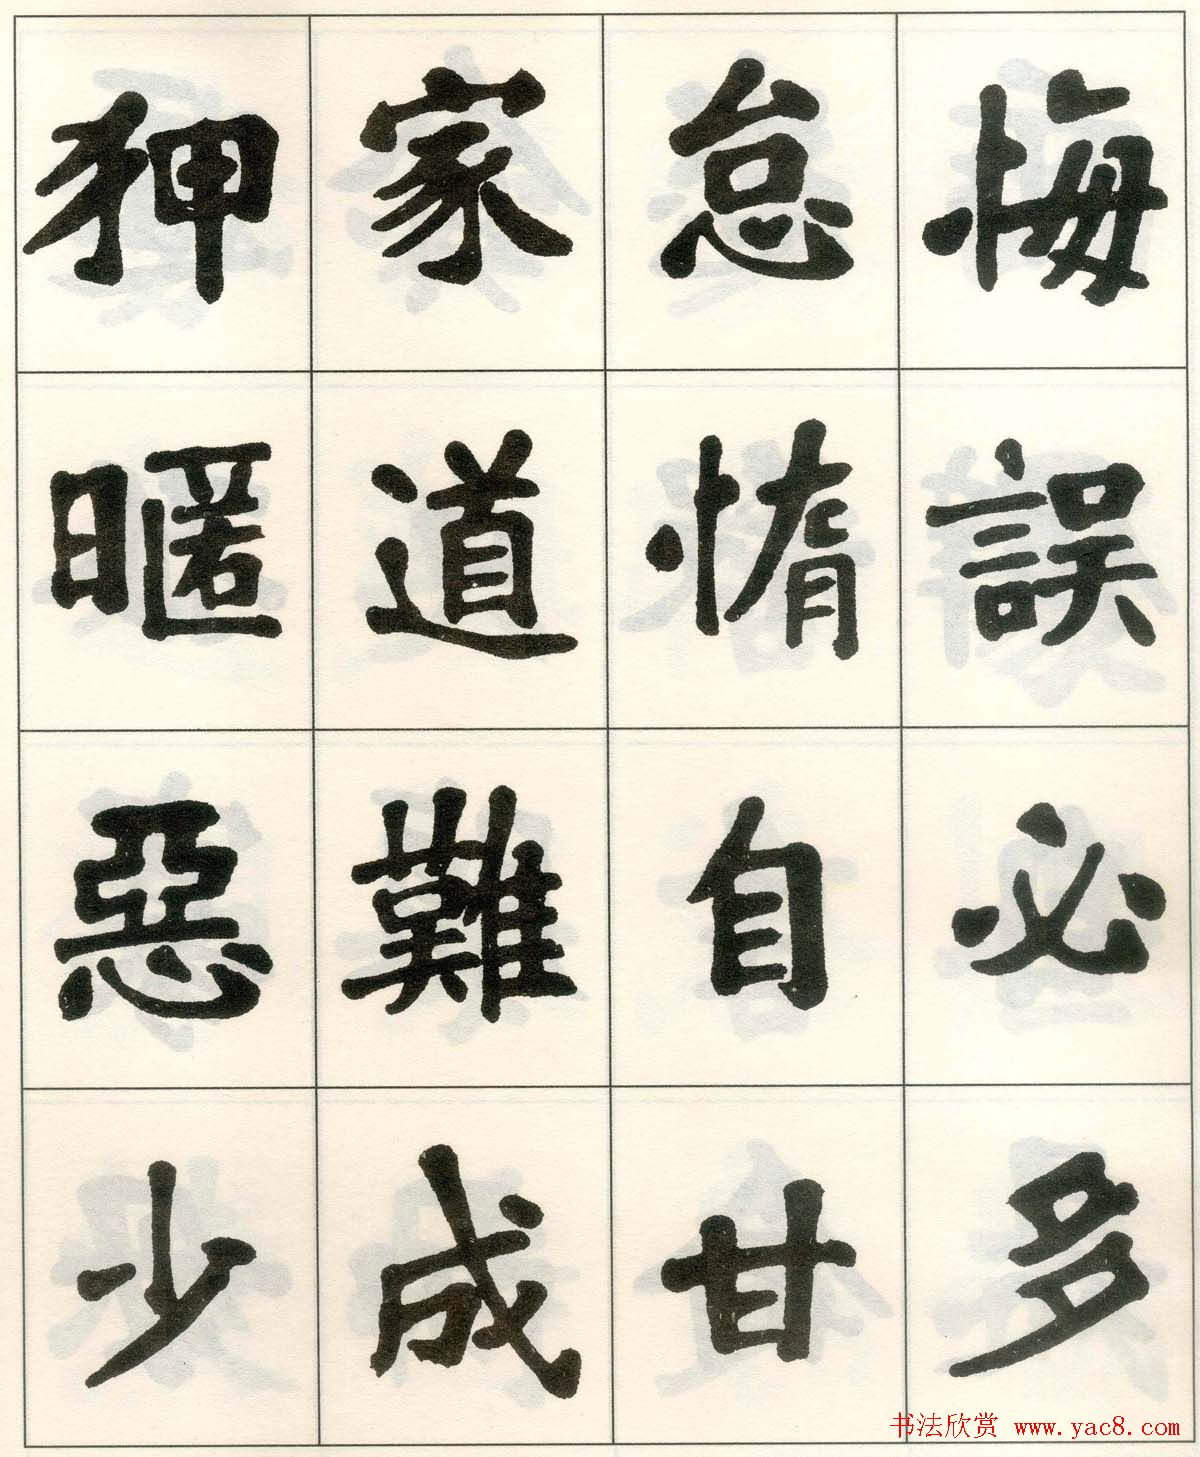 悔誤必多
怠惰自甘
家道難成
狎暱惡少
书法欣赏 www.yac8.com